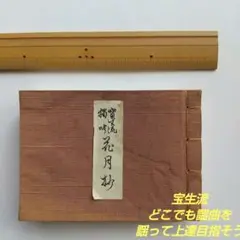 宝生流
獨吟 花月抄
宝生流
どこでも謡曲を
謡って上達目指そう